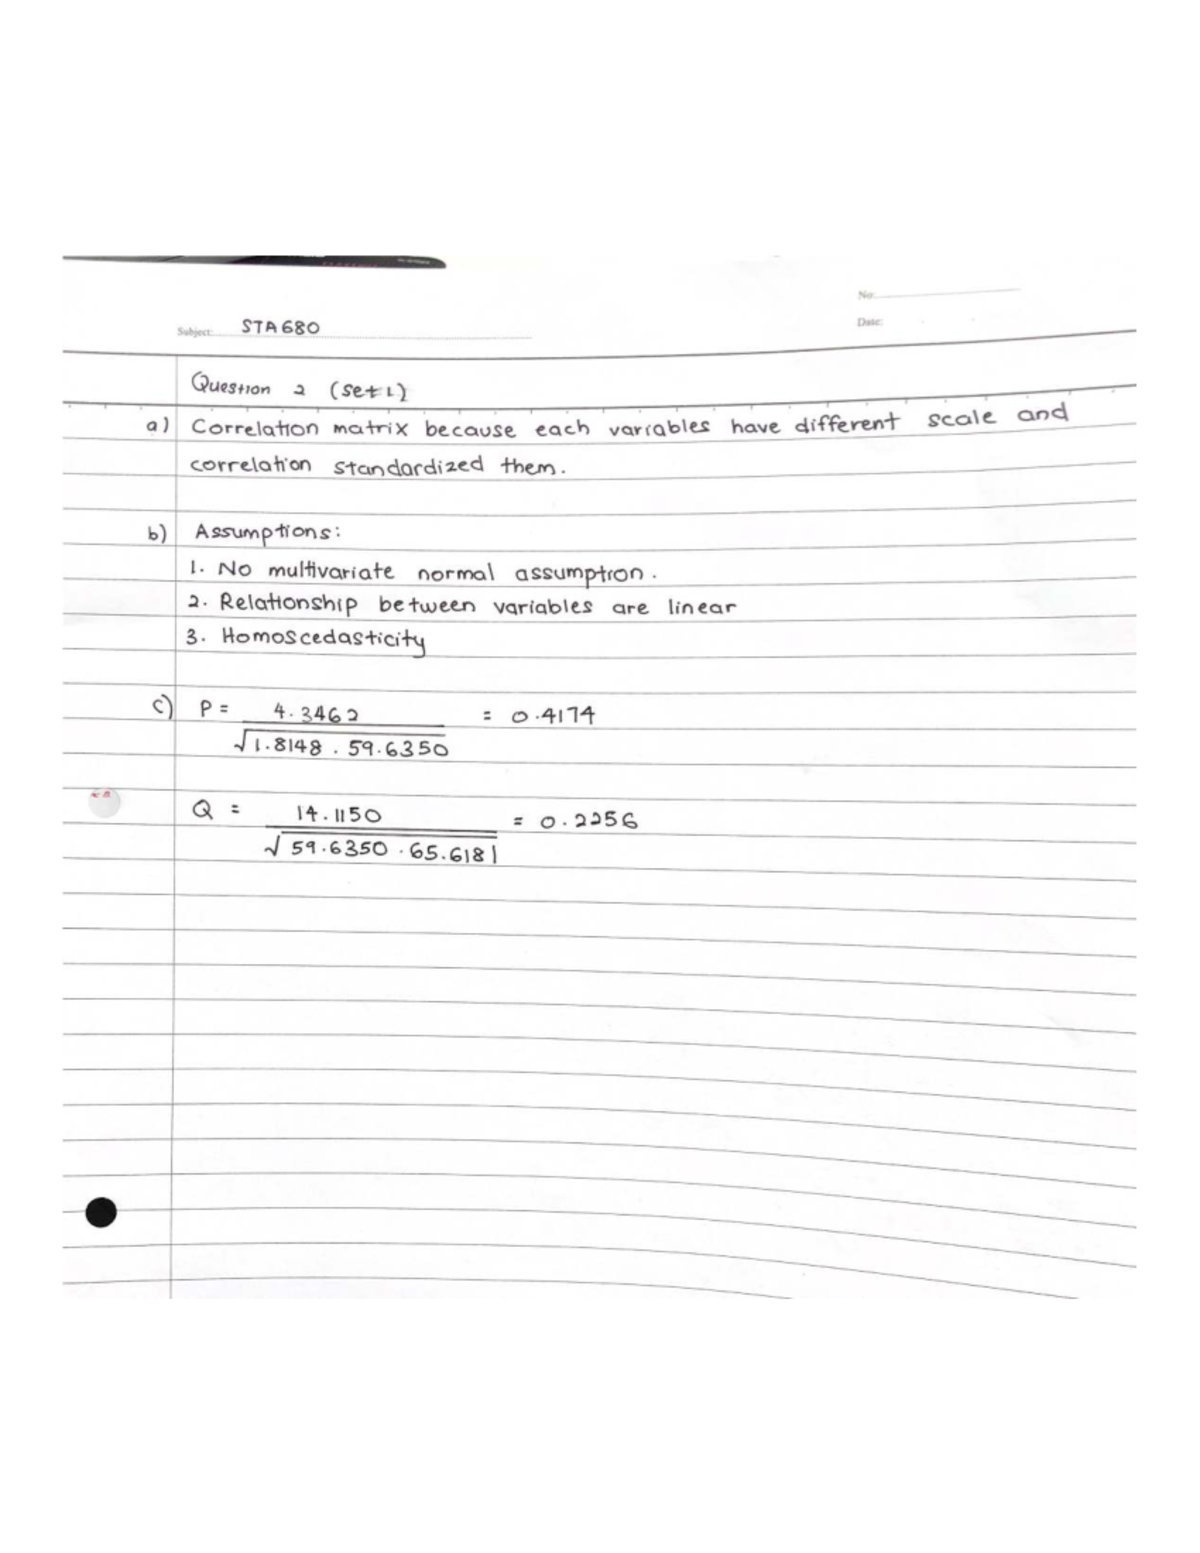 No:
Subject: STA680
Date:
Question 2 (set 1)
a) Correlation matrix because each variables have different scale and
correlation standardized them.
b) Assumptions:
1. No multivariate normal assumption.
2. Relationship between variables are linear
3. Homoscedasticity
c) P = 4.3462 / √1.8148 . 59.6350 = 0.4174
Q = 14.1150 / √59.6350 . 65.6181 = 0.2256